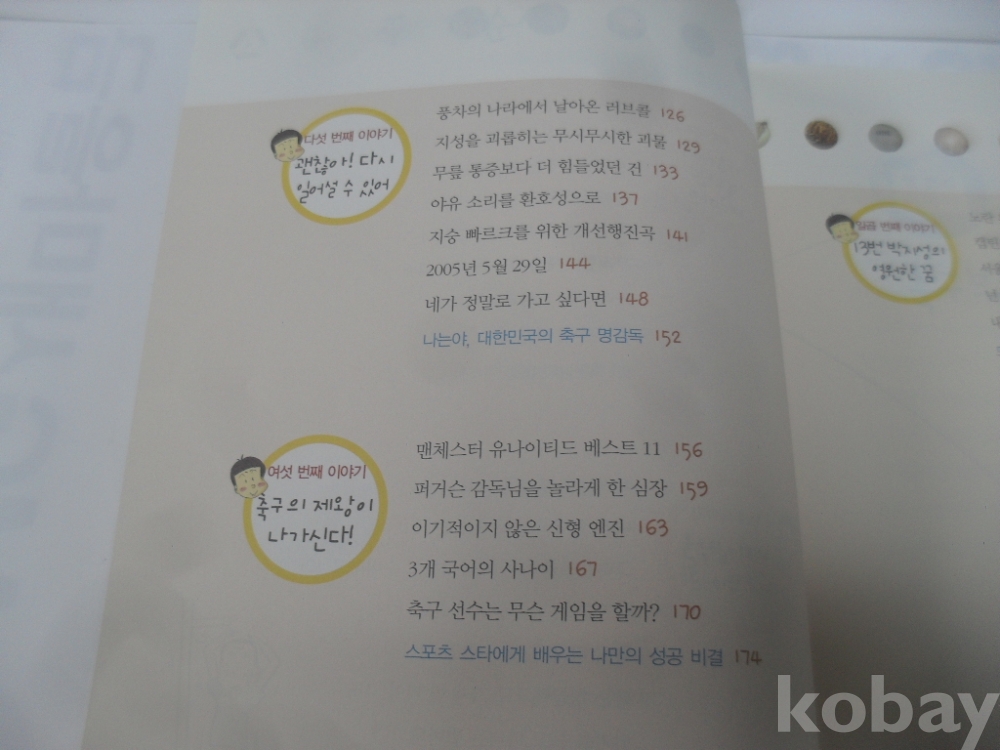 다섯 번째 이야기
괜찮아! 다시
일어설 수 있어
풍차의 나라에서 날아온 러브콜 126
지성을 괴롭히는 무시무시한 괴물 129
무릎 통증보다 더 힘들었던 건 133
야유 소리를 환호성으로 137
지숭 빠르크를 위한 개선행진곡 141
2005년 5월 29일 144
네가 정말로 가고 싶다면 148
나는야, 대한민국의 축구 명감독 152
여섯 번째 이야기
축구의 제왕이
나가신다!
맨체스터 유나이티드 베스트 11 156
퍼거슨 감독님을 놀라게 한 심장 159
이기적이지 않은 신형 엔진 163
3개 국어의 사나이 167
축구 선수는 무슨 게임을 할까? 170
스포츠 스타에게 배우는 나만의 성공 비결 174
일곱 번째 이야기
13번 박지성의
영원한 꿈
kobay